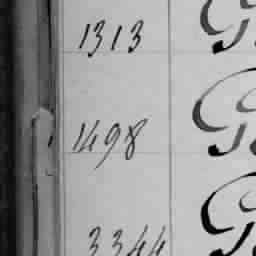 1313
1498
3344